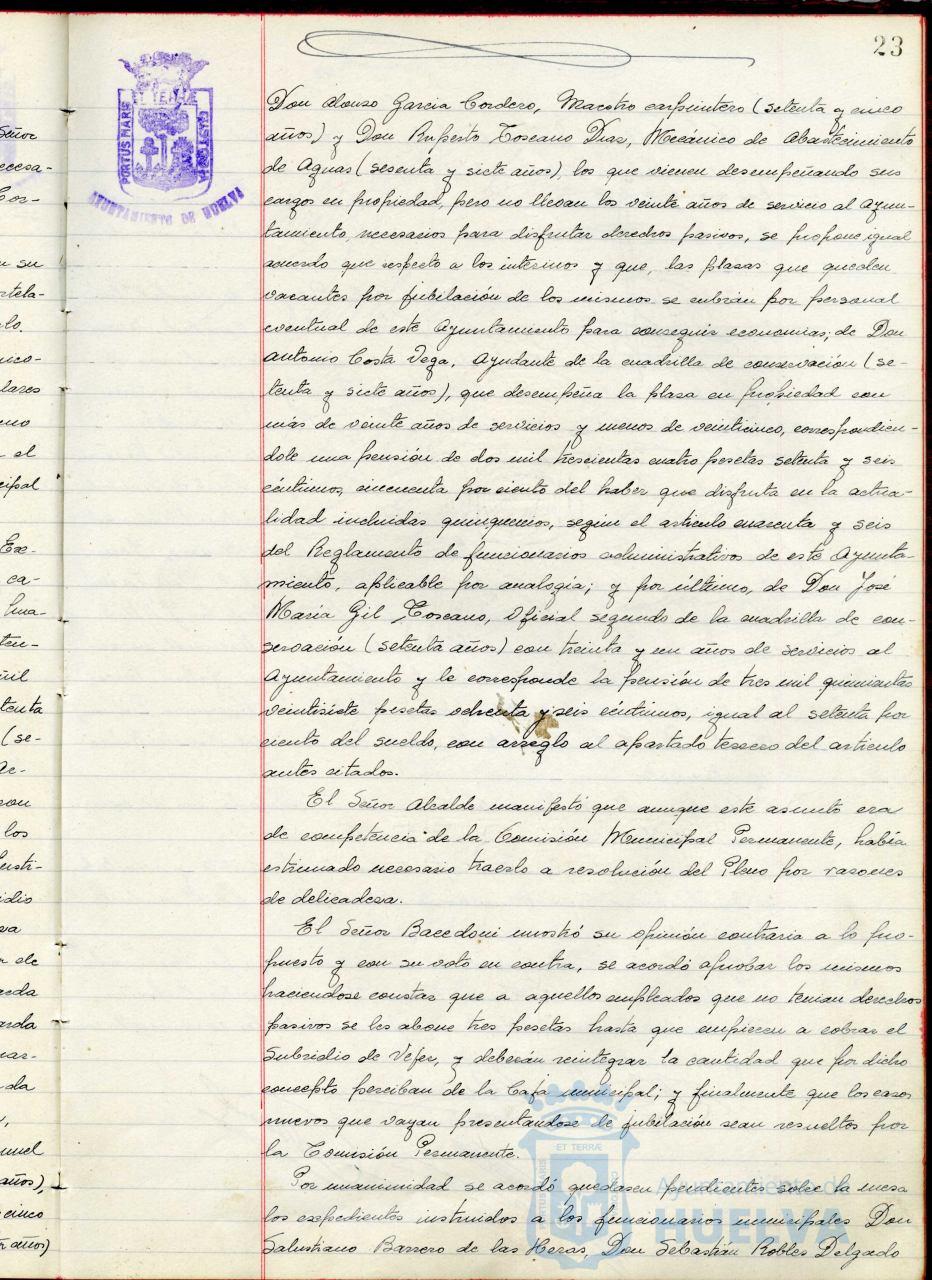 23
PORTUS MARIS
ET TERRÆ
AYUNTAMIENTO DE HUELVA
Don Alonso Garcia Cordero, Maestro carpintero (setenta y cinco
años) y Don Ruperto Toscano Diaz, Mecánico de Abastecimiento
de Aguas (sesenta y siete años), los que vienen desempeñando sus
cargos en propiedad, pero no llevan los veinte años de servicio al Ayun-
tamiento, necesarios para disfrutar derechos pasivos, se propone igual
acuerdo que respecto a los interinos y que, las plazas que queden
vacantes por jubilación de los mismos se cubran por personal
eventual de este Ayuntamiento para conseguir economias; de Don
Antonio Costa Vega, Ayudante de la cuadrilla de conservación (se-
tenta y siete años), que desempeña la plaza en propiedad con
más de veinte años de servicios y menos de veinticinco, correspondien-
dole una pensión de dos mil trescientas cuatro pesetas setenta y seis
céntimos, cincuenta por ciento del haber que disfruta en la actua-
lidad incluidas quinquenios, según el articulo cuarenta y seis
del Reglamento de funcionarios administrativos de este Ayunta-
miento, aplicable por analogia; y por último, de Don José
Maria Gil Toscano, Oficial segundo de la cuadrilla de con-
servación (setenta años) con treinta y un años de servicios al
Ayuntamiento y le corresponde la pensión de tres mil quinientas
veintisiete pesetas ochenta y seis céntimos, igual al setenta por
ciento del sueldo, con arreglo al apartado tercero del articulo
antes citados.
El Señor Alcalde manifestó que aunque este asunto era
de competencia de la Comisión Municipal Permanente, habia
estimado necesario traerlo a resolución del Pleno por razones
de delicadeza.
El Señor Bacedoni mostró su opinión contraria a lo pro-
puesto y con su voto en contra, se acordó aprobar los mismos
haciendose constar que a aquellos empleados que no tenian derechos
pasivos se les abone tres pesetas hasta que empiecen a cobrar el
Subsidio de Vejez, y deberán reintegrar la cantidad que por dicho
concepto perciban de la Caja municipal; y finalmente que los casos
nuevos que vayan presentandose de jubilación sean resueltos por
la Comisión Permanente.
Por unanimidad se acordó quedasen pendientes sobre la mesa
los expedientes instruidos a los funcionarios municipales Don
Salustiano Barrero de las Heras, Don Sebastián Robles Delgado
ET TERRÆ
Ayuntamiento de
HUELVA